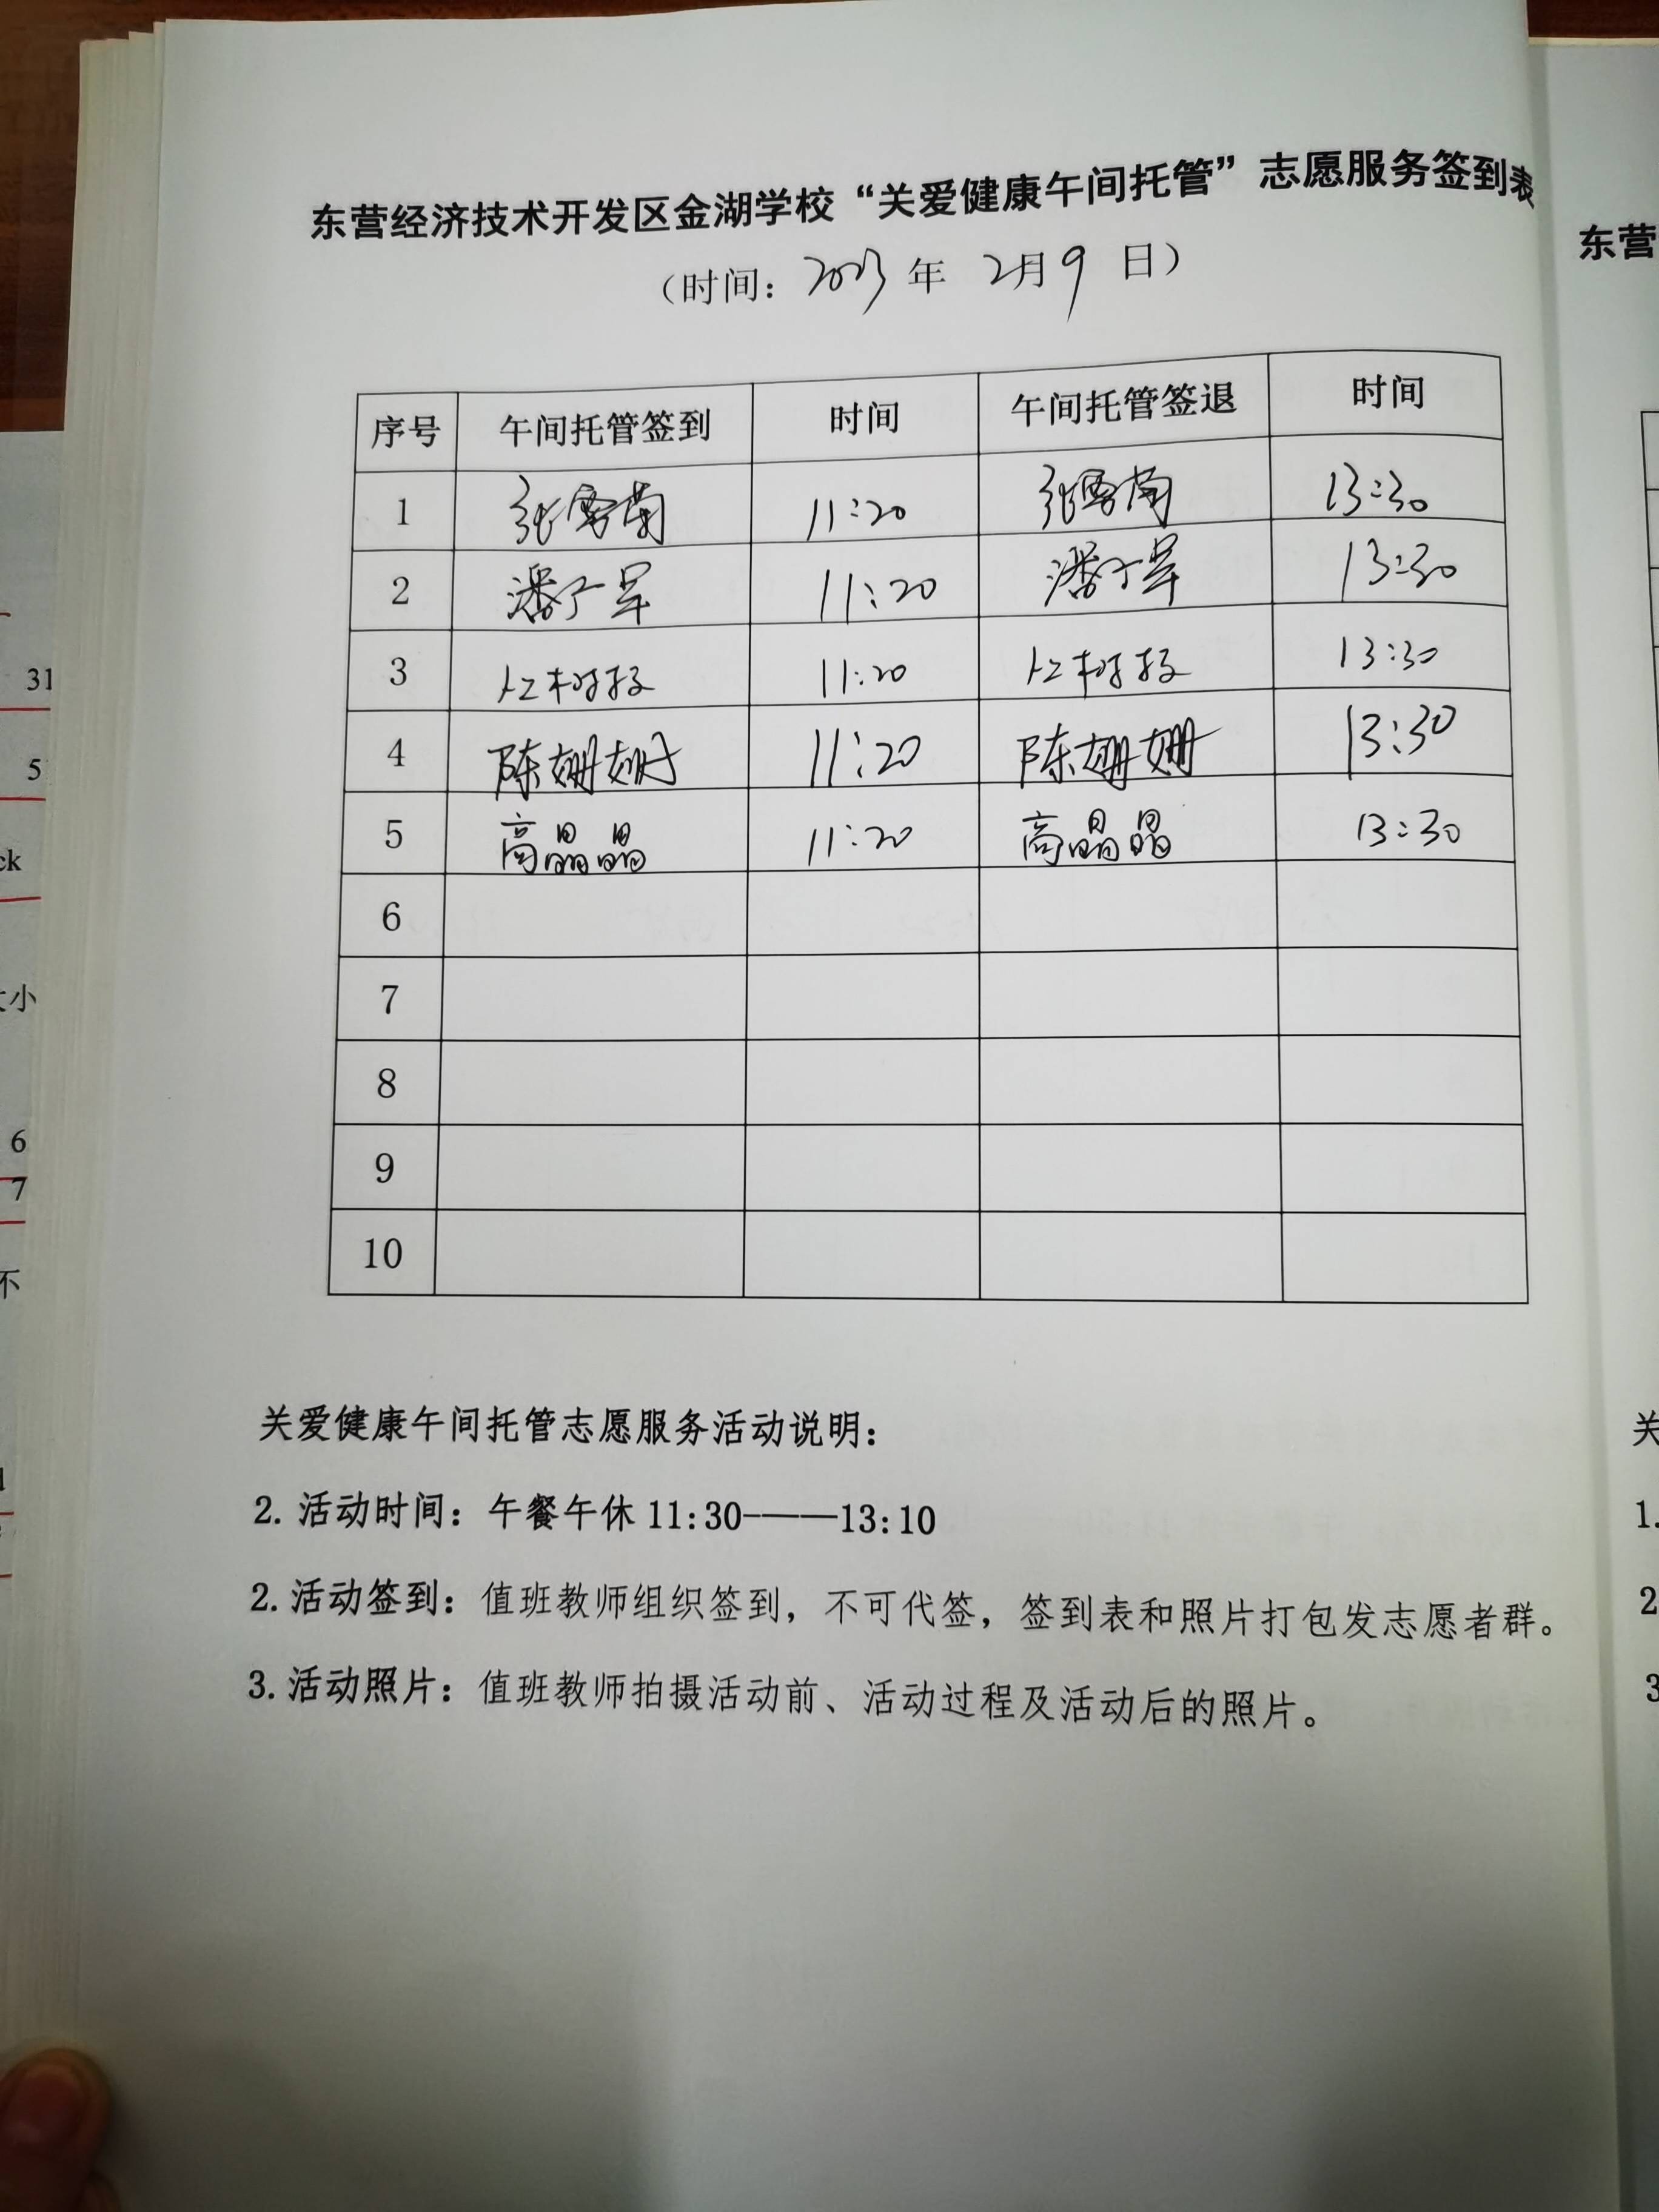 东营经济技术开发区金湖学校“关爱健康午间托管”志愿服务签到表
（时间：2023年 2月9 日）
序号 午间托管签到 时间 午间托管签退 时间
1 张雪菊 11:20 张雪菊 13:30
2 潘广军 11:20 潘广军 13:30
3 11:20 13:30
4 陈姗姗 11:20 陈姗姗 13:30
5 高晶晶 11:20 高晶晶 13:30
6
7
8
9
10
关爱健康午间托管志愿服务活动说明：
2. 活动时间：午餐午休 11:30-———13:10
2. 活动签到：值班教师组织签到，不可代签，签到表和照片打包发志愿者群。
3. 活动照片：值班教师拍摄活动前、活动过程及活动后的照片。
31
5
ck
小
6
7
不
东营
关
1.
2
3